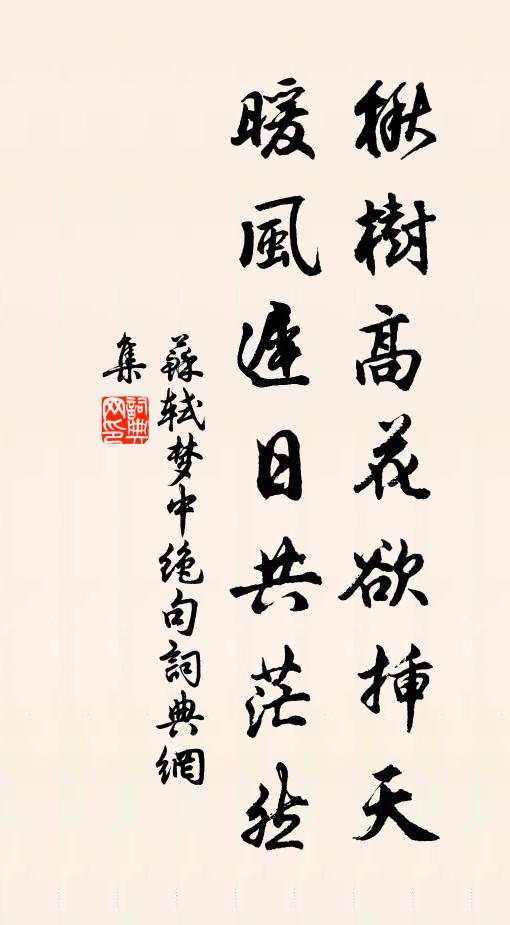 楸樹高花欲插天
暖風遲日共茫然
蘇軾梦中绝句詞典網
集
詞典网印